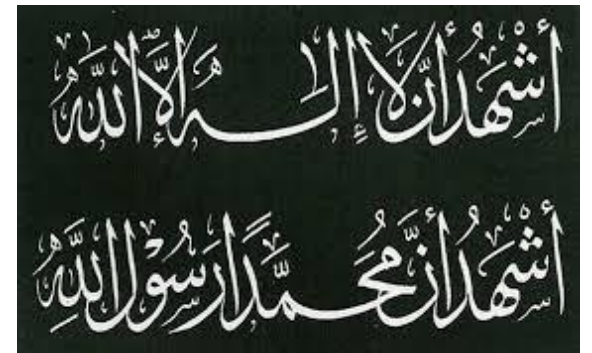 أَشْهَدُ أَنْ لَا إِلٰهَ إِلَّا اللّٰهُ
أَشْهَدُ أَنَّ مُحَمَّدًا رَسُوْلُ اللّٰهِ